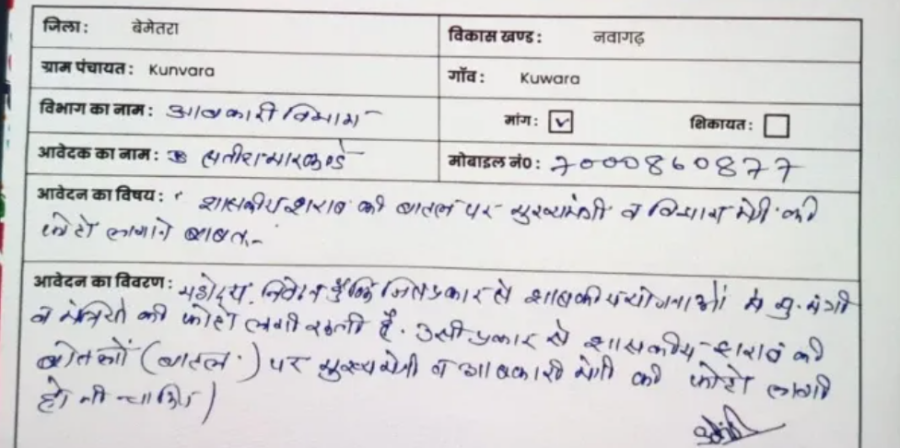 जिला: बेमेतरा
विकास खण्ड: नवागढ़
ग्राम पंचायत: Kunvara
गाँव: Kuwara
विभाग का नाम: आबकारी विभाग
मांग: ✓ शिकायत:
आवेदक का नाम: सतीश मारकण्डे
मोबाइल नं0: 7000860877
आवेदन का विषय: शासकीय शराब की बातल पर मुख्यमंत्री व विभाग मंत्री की
फोटो लगाने बाबत.-
आवेदन का विवरण: महोदय, निवेदन है कि जिस प्रकार से शासकीय योजनाओं में मु. मंत्री
व मंत्रियों की फोटो लगी रहती है. उसी प्रकार से शासकीय शराब की
बोतलों (बातल) पर मुख्यमंत्री व आबकारी मंत्री की फोटो लगी
होनी चाहिए।